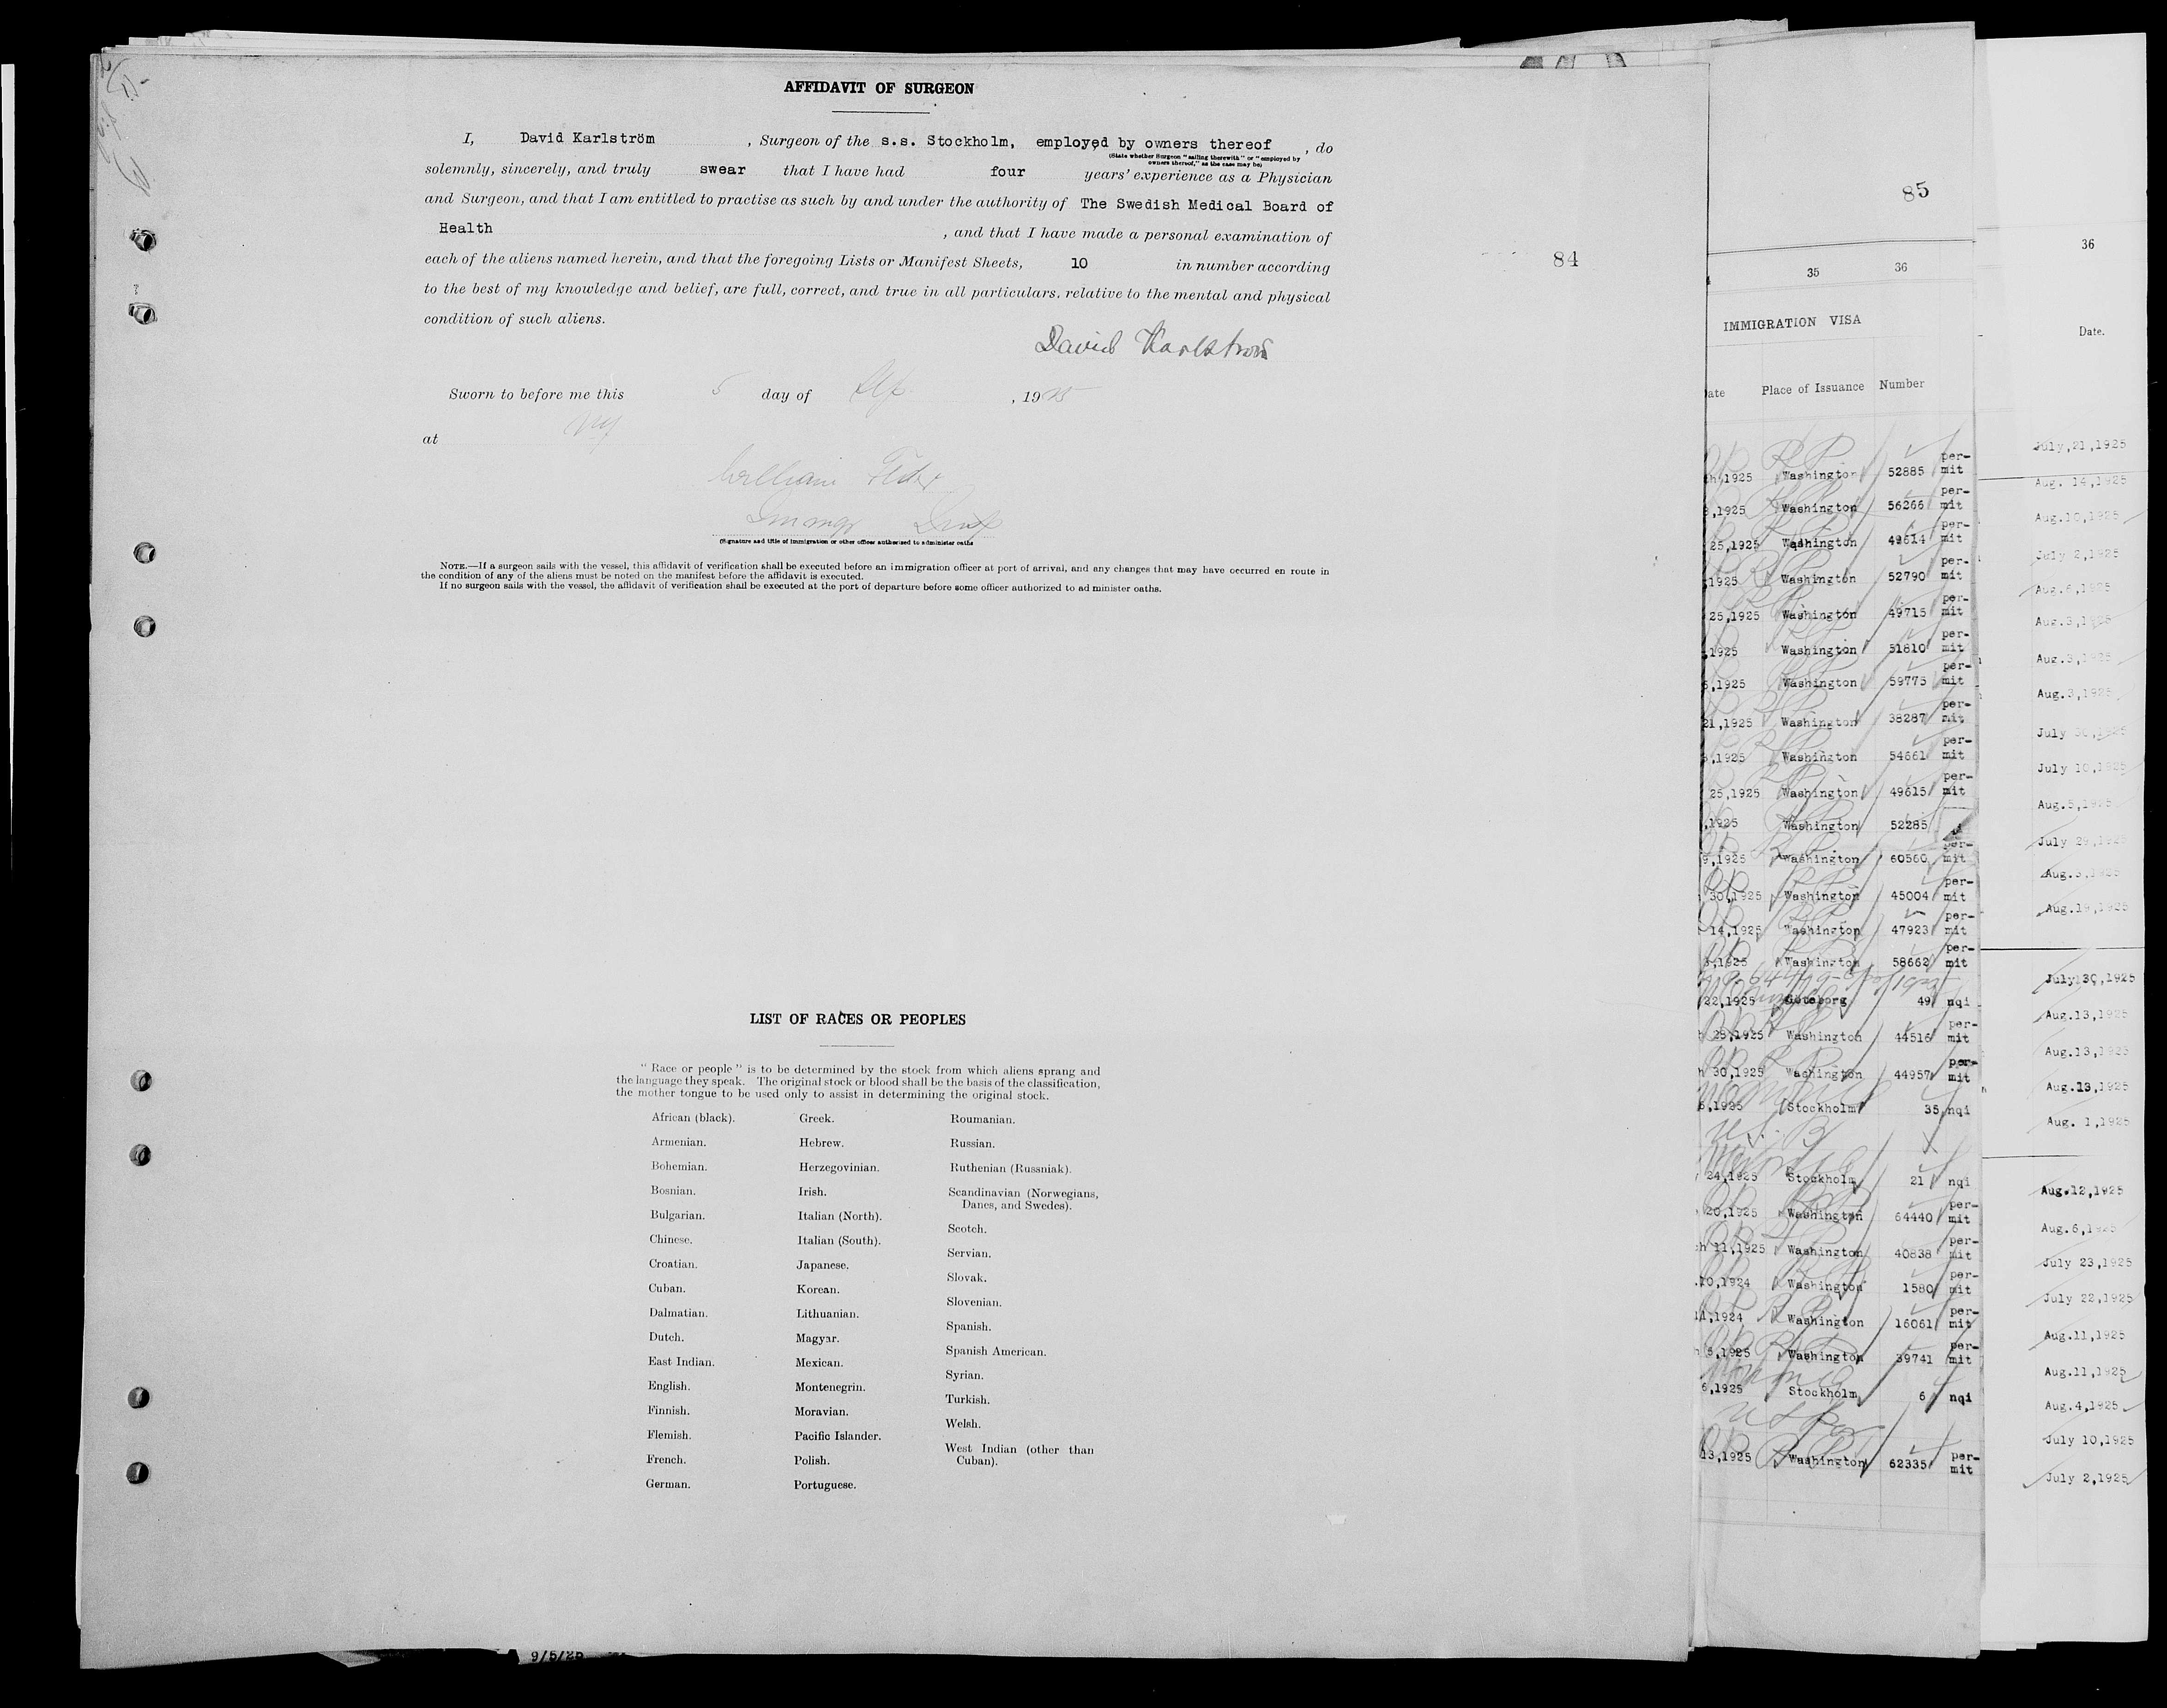 AFFIDAVIT OF SURGEON
I, David Karlström , Surgeon of the s.s. Stockholm, employed by owners thereof , do
(State whether Surgeon "sailing therewith" or "employed by
owners thereof," as the case may be)
solemnly, sincerely, and truly swear that I have had four years' experience as a Physician
and Surgeon, and that I am entitled to practise as such by and under the authority of The Swedish Medical Board of
Health , and that I have made a personal examination of
each of the aliens named herein, and that the foregoing Lists or Manifest Sheets, 10 in number according
to the best of my knowledge and belief, are full, correct, and true in all particulars, relative to the mental and physical
condition of such aliens.
David Karlström
Sworn to before me this 5 day of , 1925
at NY
William
(Signature and title of immigration or other officer authorised to administer oaths
NOTE.—If a surgeon sails with the vessel, this affidavit of verification shall be executed before an immigration officer at port of arrival, and any changes that may have occurred en route in
the condition of any of the aliens must be noted on the manifest before the affidavit is executed.
If no surgeon sails with the vessel, the affidavit of verification shall be executed at the port of departure before some officer authorized to ad minister oaths.
LIST OF RACES OR PEOPLES
"Race or people" is to be determined by the stock from which aliens sprang and
the language they speak. The original stock or blood shall be the basis of the classification,
the mother tongue to be used only to assist in determining the original stock.
African (black).
Armenian.
Bohemian.
Bosnian.
Bulgarian.
Chinese.
Croatian.
Cuban.
Dalmatian.
Dutch.
East Indian.
English.
Finnish.
Flemish.
French.
German.
Greek.
Hebrew.
Herzegovinian.
Irish.
Italian (North).
Italian (South).
Japanese.
Korean.
Lithuanian.
Magyar.
Mexican.
Montenegrin.
Moravian.
Pacific Islander.
Polish.
Portuguese.
Roumanian.
Russian.
Ruthenian (Russniak).
Scandinavian (Norwegians,
Danes, and Swedes).
Scotch.
Servian.
Slovak.
Slovenian.
Spanish.
Spanish American.
Syrian.
Turkish.
Welsh.
West Indian (other than
Cuban).
84
9/5/25
85
35 36
IMMIGRATION VISA
Place of Issuance Number
1925 Washington 52885 per-mit
,1925 Washington 56266 per-mit
25,1925 Washington 49614 per-mit
1925 Washington 52790 per-mit
25,1925 Washington 49715 per-mit
,1925 Washington 51810 per-mit
,1925 Washington 59775 per-mit
21,1925 Washington 38287 per-mit
,1925 Washington 54661 per-mit
25,1925 Washington 49615 per-mit
,1925 Washington 52285
9,1925 Washington 60560 per-mit
30,1925 Washington 45004 per-mit
14,1925 Washington 47923 per-mit
,1925 Washington 58662 per-mit
22,1925 Göteborg 49 nqi
25,1925 Washington 44516 per-mit
30,1925 Washington 44957 per-mit
,1925 Stockholm 35 nqi
24,1925 Stockholm 21 nqi
20,1925 Washington 64440 per-mit
11,1925 Washington 40838 per-mit
10,1924 Washington 1580 per-mit
,1924 Washington 16061 per-mit
5,1925 Washington 39741 per-mit
6,1925 Stockholm 6 nqi
13,1925 Washington 62335 per-mit
36
Date.
July,21,1925
Aug. 14,1925
Aug.10,1925
July 2,1925
Aug.6,1925
Aug.3,1925
Aug.3,1925
Aug.3,1925
July 30,1925
July 10,1925
Aug.5,1925
July 29,1925
Aug.3,1925
Aug.19,1925
July 30,1925
Aug.13,1925
Aug.13,1925
Aug.13,1925
Aug. 1,1925
Aug.12,1925
Aug.6,1925
July 23,1925
July 22,1925
Aug.11,1925
Aug.11,1925
Aug.4,1925
July 10,1925
July 2,1925